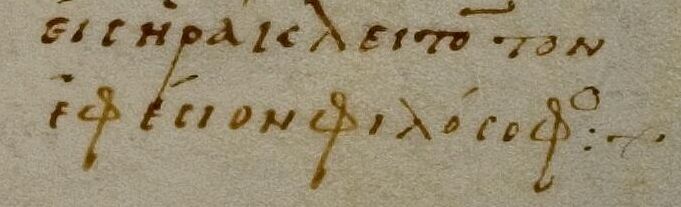 εἰς ἡράκλειτο̅ τὸν
ἐφέσιον φιλόσοφο :+